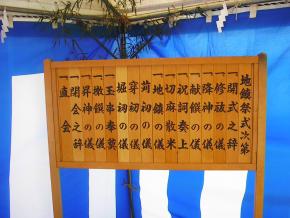 地鎮祭式次第
一開式之辞
一修祓の儀
一降神の儀
一献饌の儀
一祝詞奏上
一切麻散米
一地鎮の儀
苅初の儀
穿初の儀
堀初の儀
一玉串奉奠
一撤饌の儀
一昇神の儀
一閉会之辞
一直会